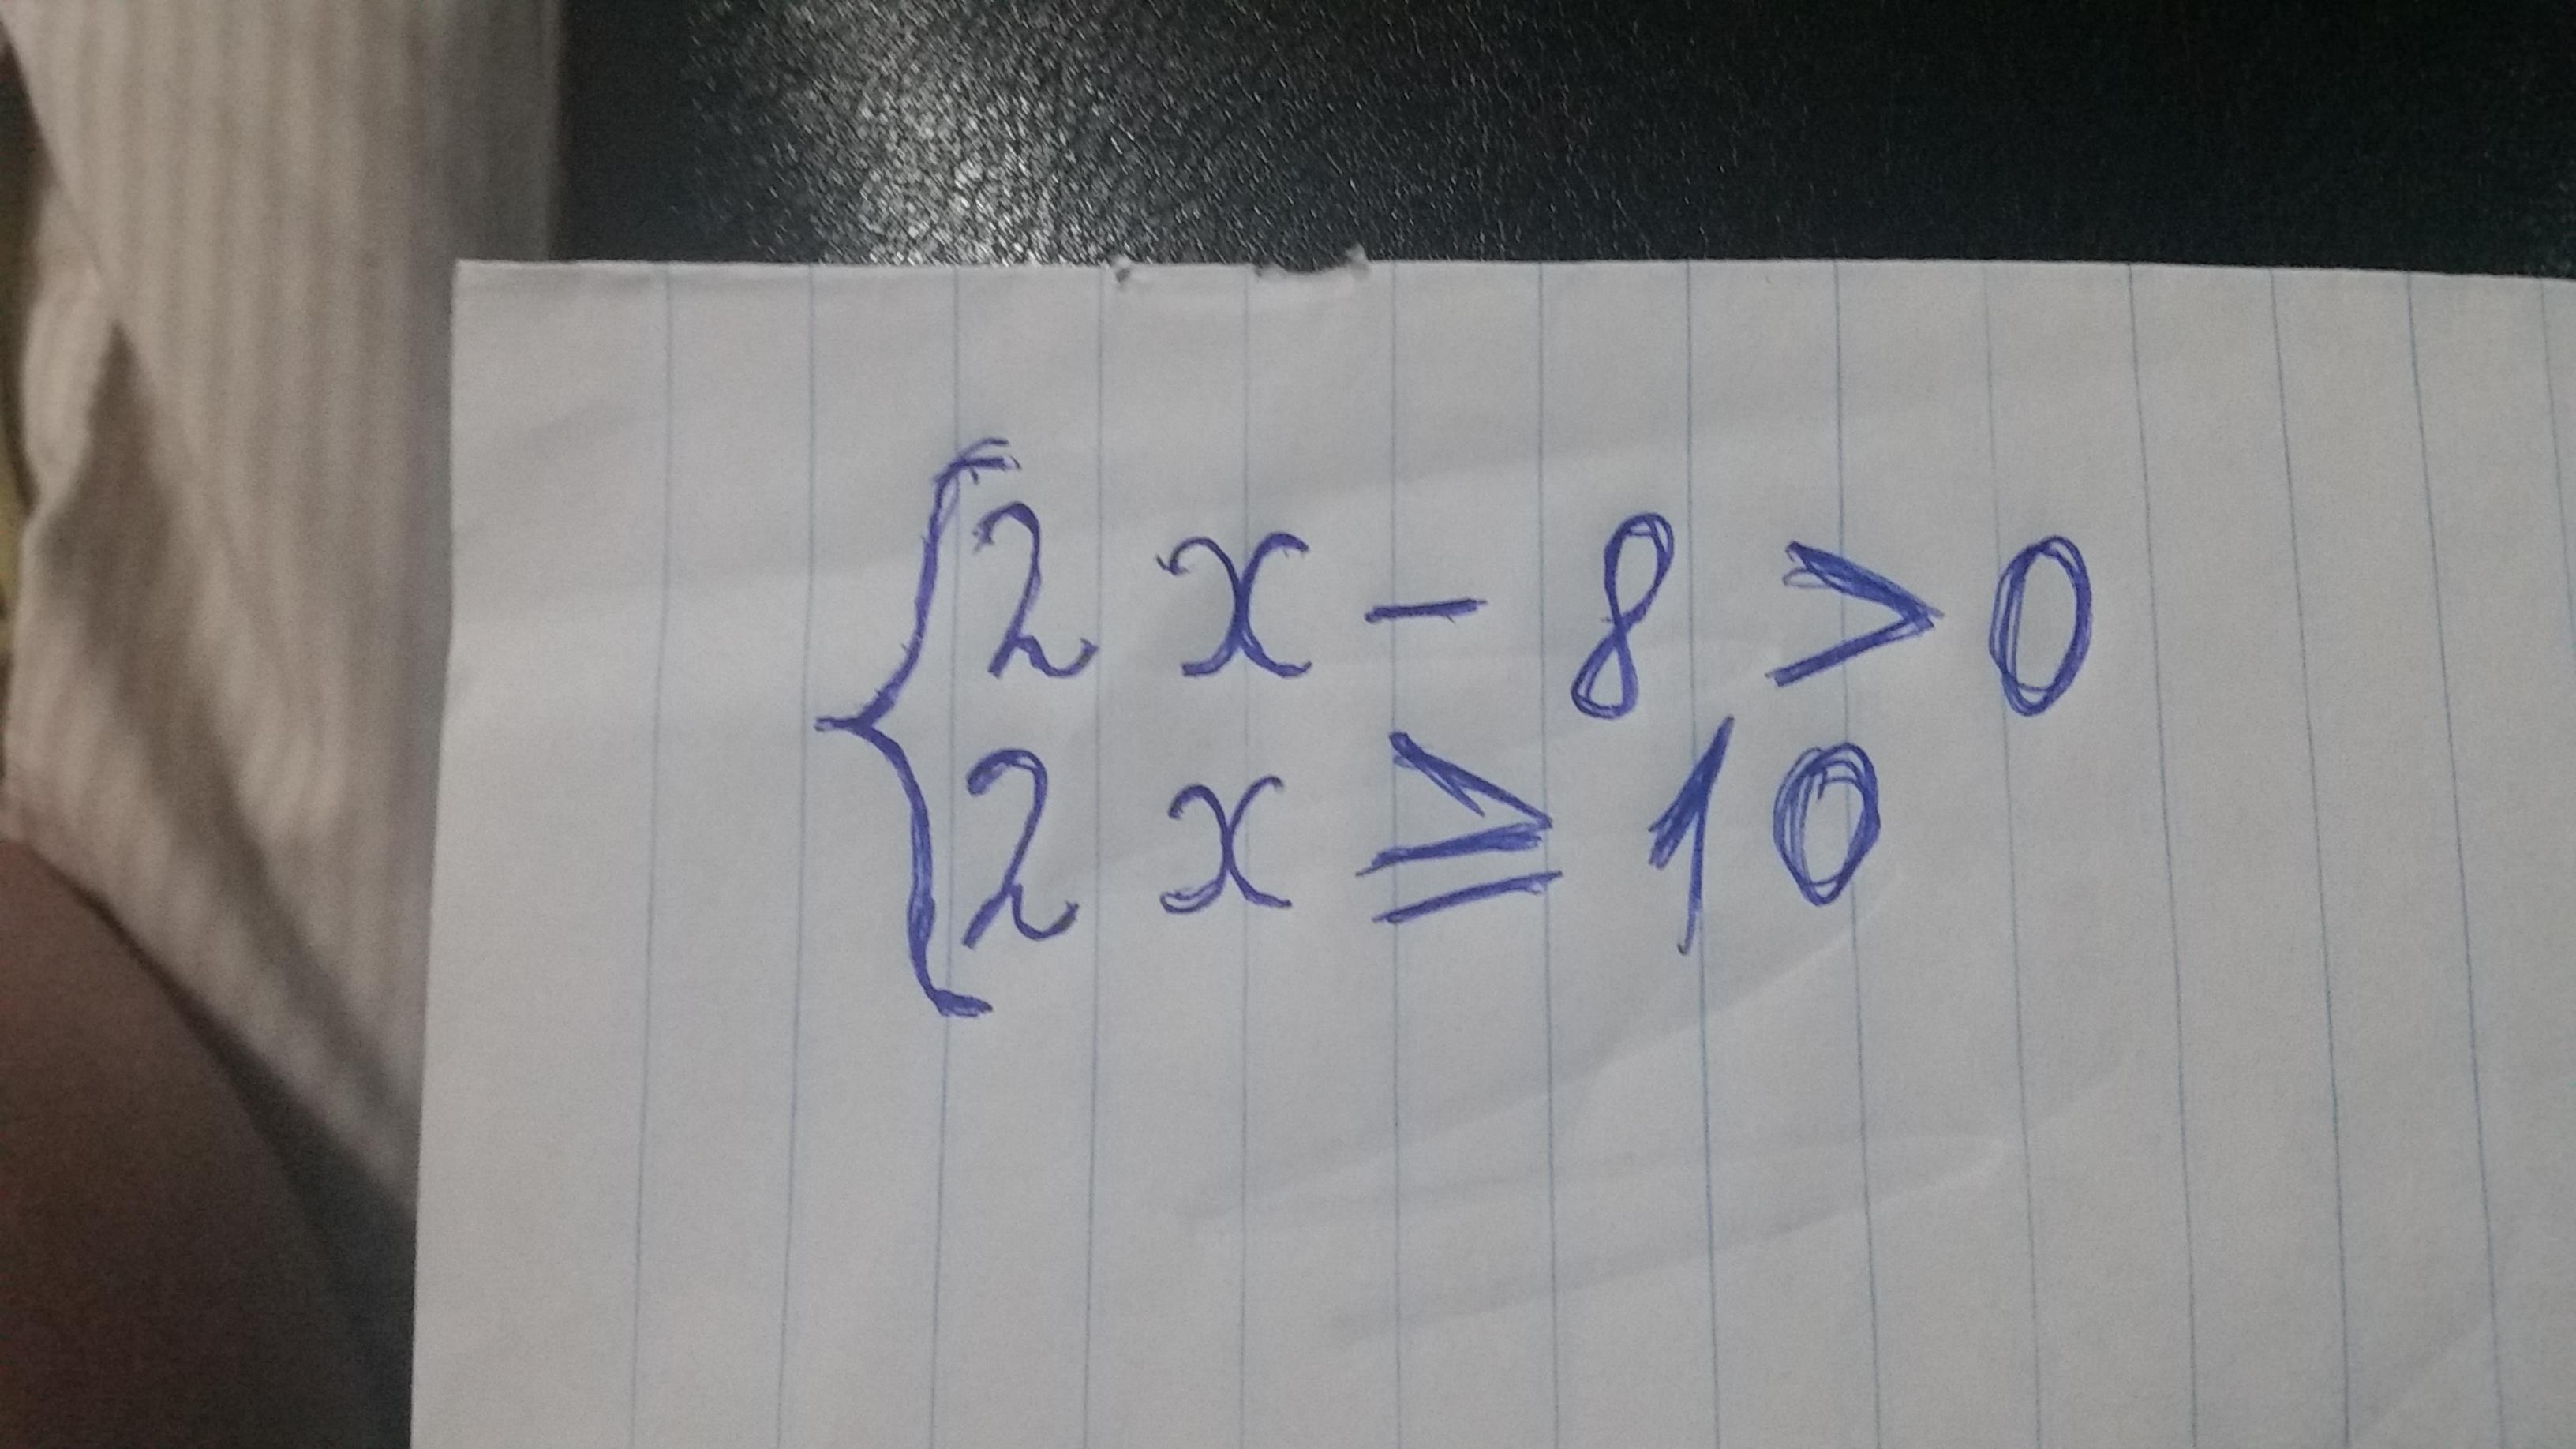 2x - 8 > 0
2x ≧ 10